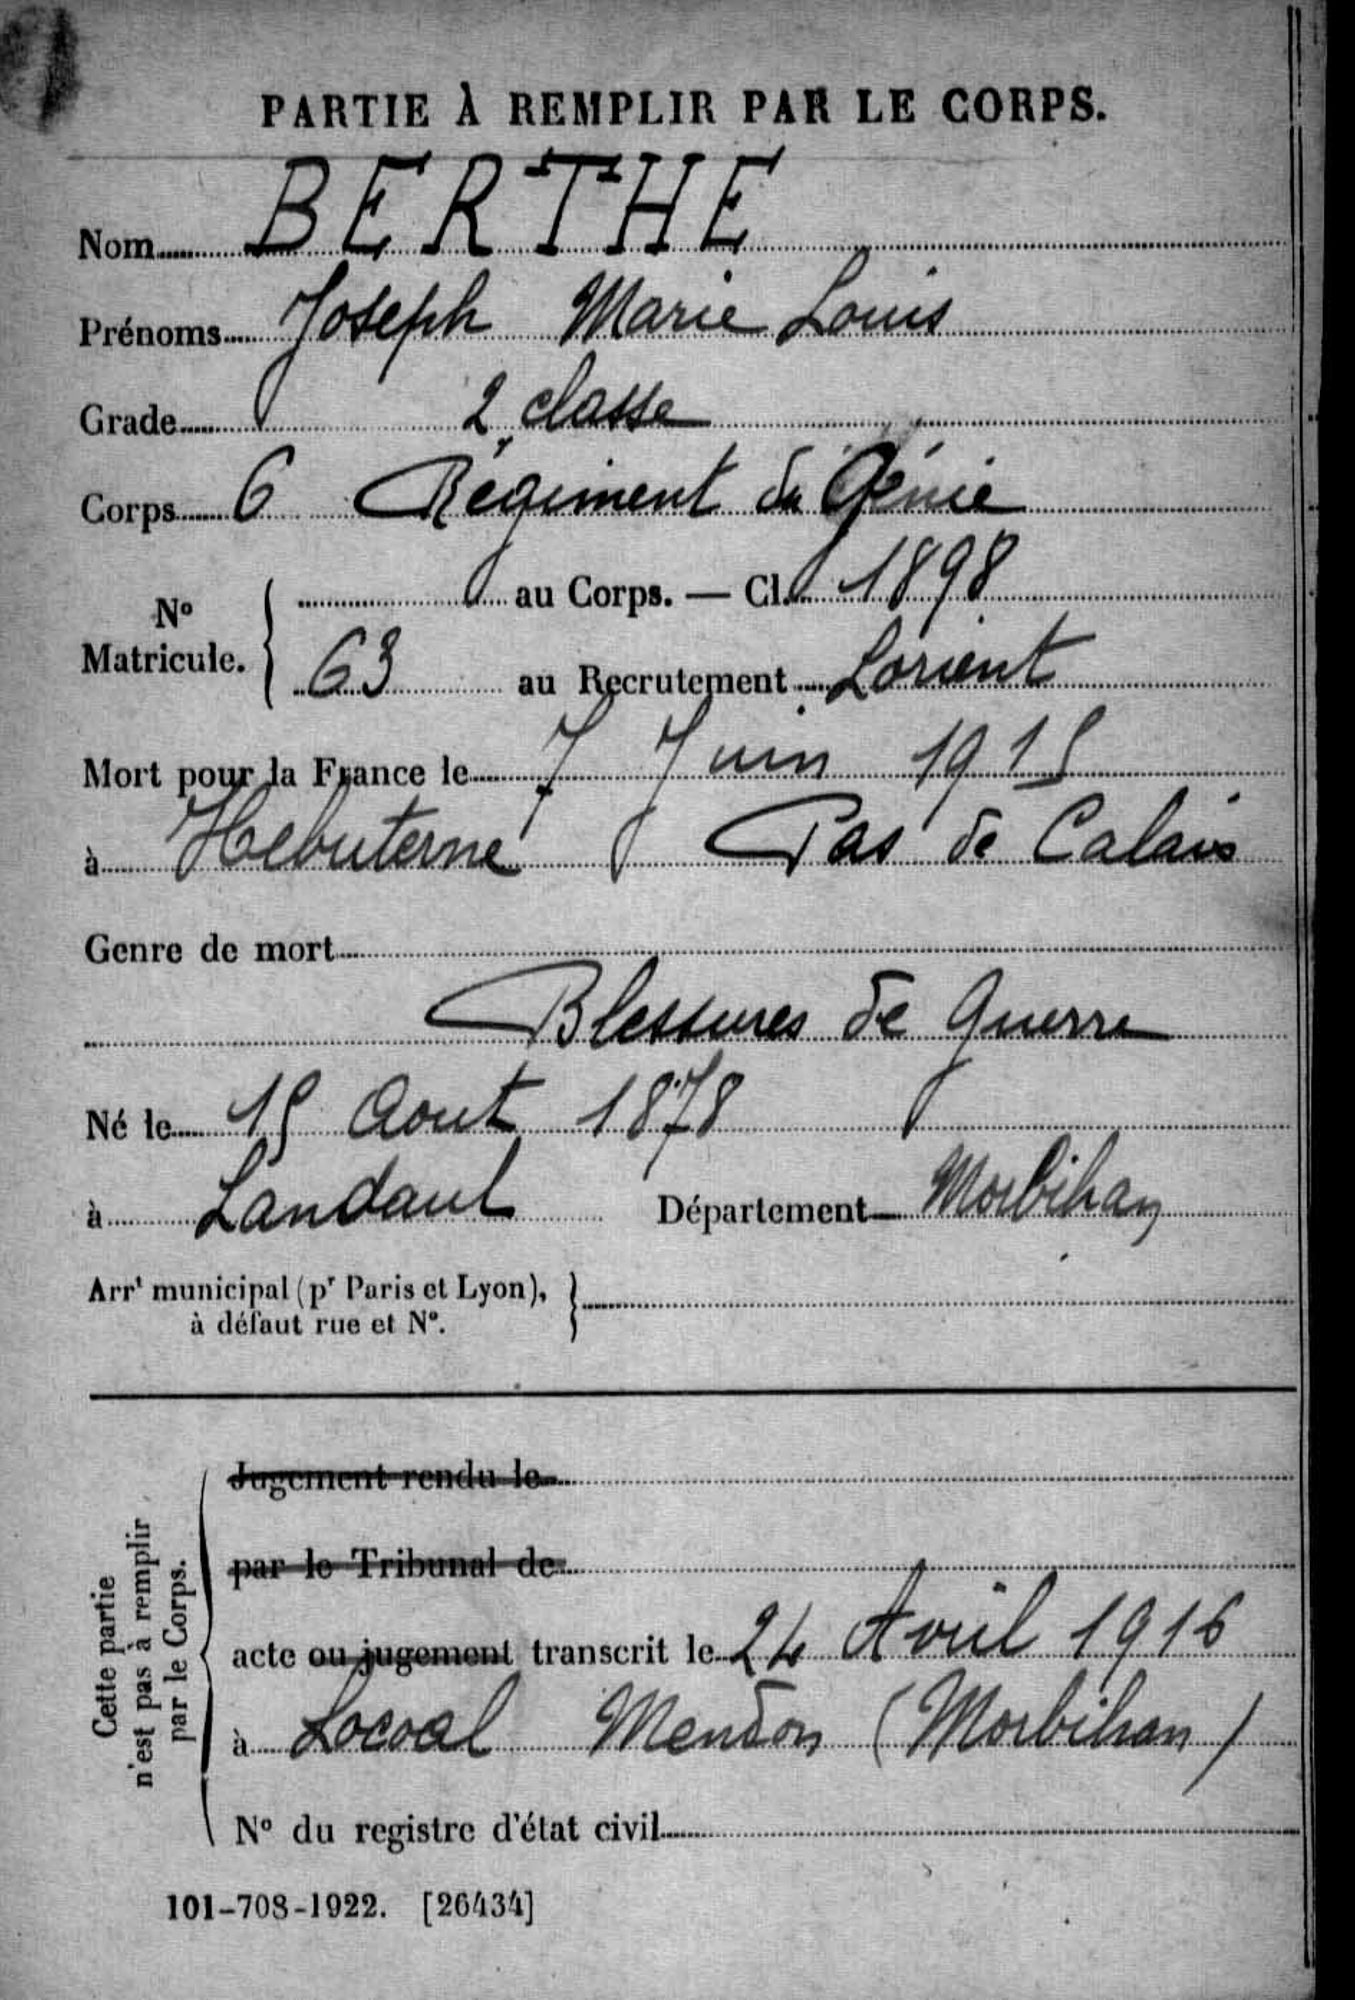 PARTIE À REMPLIR PAR LE CORPS.
Nom BERTHE
Prénoms Joseph Marie Louis
Grade 2e classe
Corps 6 Régiment du Génie
No Matricule. au Corps. — Cl. 1898
63 au Recrutement Lorient
Mort pour la France le 7 Juin 1915
à Hebuterne Pas de Calais
Genre de mort
Blessures de Guerre
Né le 15 Aout 1878
à Landaul Département Morbihan
Arrt municipal (pr Paris et Lyon),
à défaut rue et No.
Cette partie
n'est pas à remplir
par le Corps.
Jugement rendu le
par le Tribunal de
acte ou jugement transcrit le 24 Avril 1916
à Locoal Mendon (Morbihan)
No du registre d'état civil
101-708-1922. [26434]